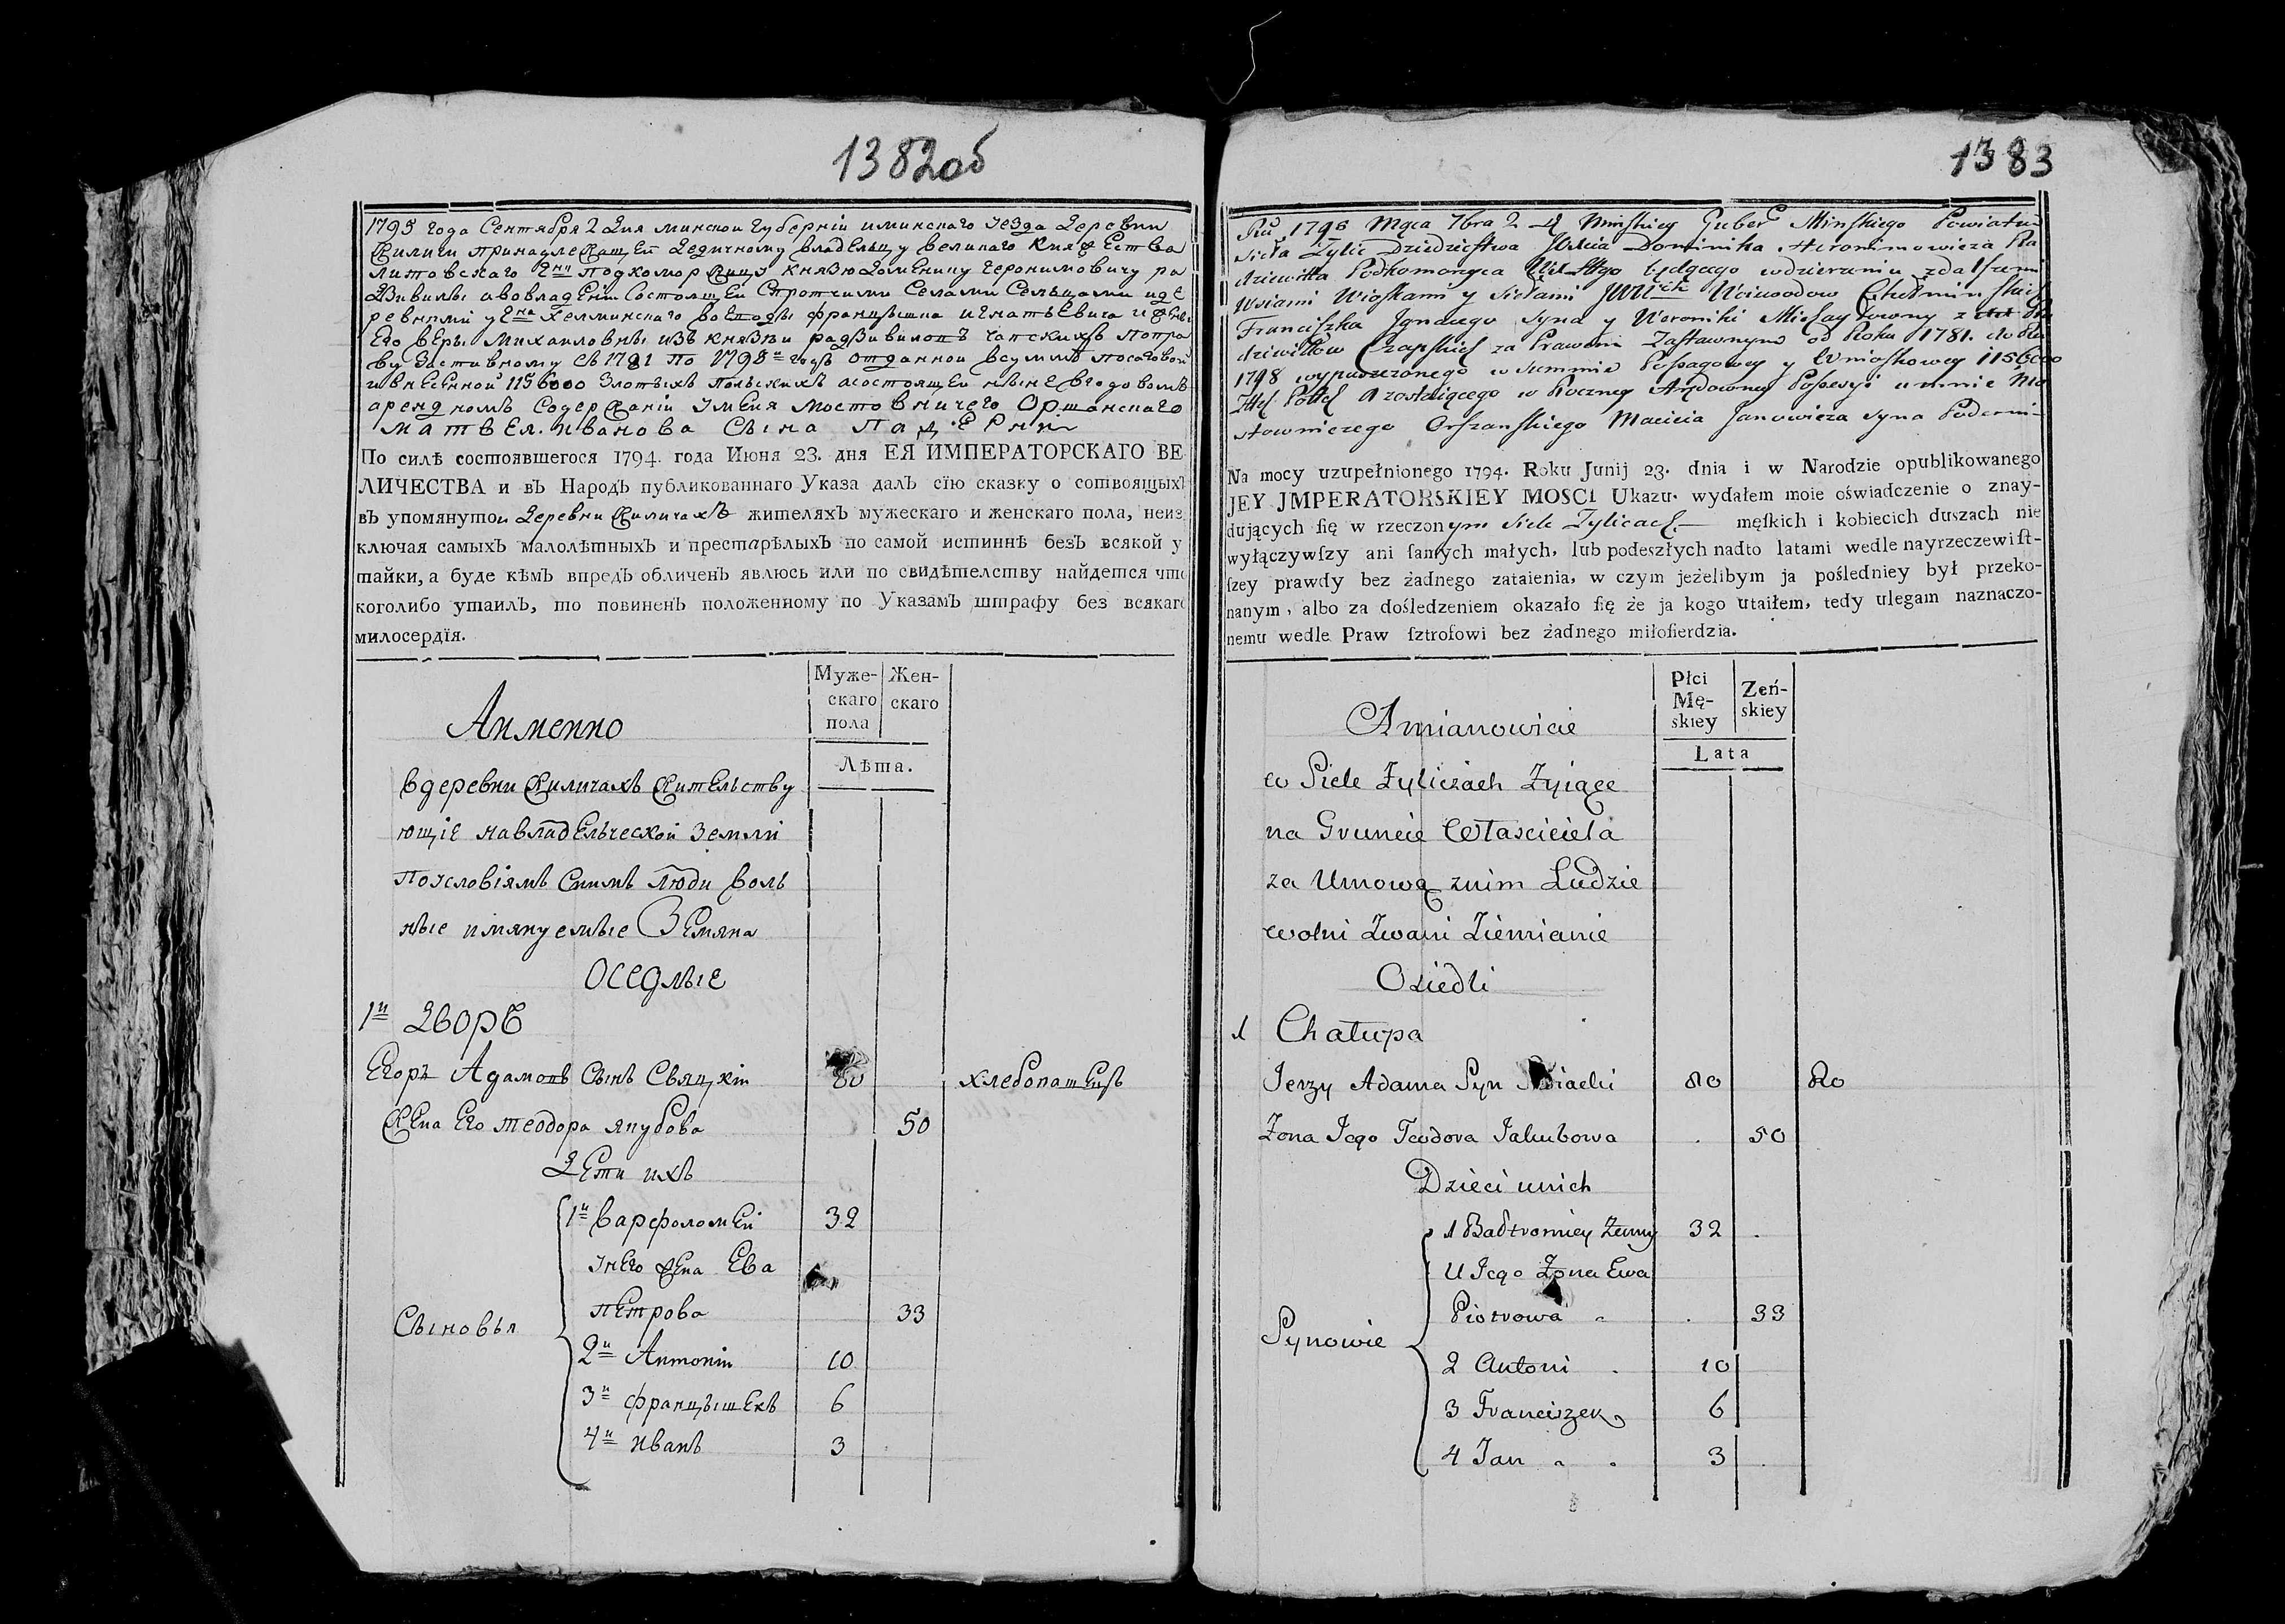 1382об
1795 года Сентября 2 Дня минской Губерніи иминскаго Уезда Деревни
Жиличи принадлежащей Дедичному владельцу великаго Княжества
Литовскаго подкоморжицу Князю Доменику Геронимовичу ра
Дзивилы авовладеніи Состоящей Спротчими Селами Сельцами иде
ревнями Хелминскаго воеводы францышка игнатьевича
Его веры Михаиловны изъ князьи радзивиловъ чапскихъ попра
ву Заставному съ 1781 по 1798 годъ отданной всумме посаговой
ивнесенной 1156000 Злотыхъ польскихъ асостоящей ныне вгодовомъ
арендномъ Содержаніи Уменя мостовничего Оршанскаго
матвея Иванова Сына Падерни
По силѣ состоявшегося 1794. года Июня 23. дня ЕЯ ИМПЕРАТОРСКАГО ВЕ
ЛИЧЕСТВА и въ Народъ публикованнаго Указа далъ сїю сказку о состоящихъ
въ упомянутои Деревни Жиличахъ жителяхъ мужескаго и женскаго пола, неиз
ключая самыхъ малолѣтныхъ и престарѣлыхъ по самой истиннѣ безъ всякой у
тайки, а буде кѣмъ впредъ обличенъ явлюсь или по свидѣтелству найдется что
коголибо утаилъ, то повиненъ положенному по Указамъ штрафу без всякаго
милосердїя.
Муже-
скаго
пола
Жен-
скаго
Лѣта.
Аименно
вдеревни Жиличахъ Жительству
ющіе навладельческой Земли
поусловіямъ Снимъ люди воль
ные имянуемые Земяна
оседлые
1й Дворъ
Егоръ Адамовъ Сынъ Свяцкіи 80 хлебопашецъ
Жена Его теодора якубова 50
Дети ихъ
1й варфоломеи 32
унего жена Ева
петрова 33
Сыновья
2й Антонiи 10
3й францышекъ 6
4й иванъ 3
1383
Ru 1795 Mqca 7bra 2 D Minſkiey Guber Minſkiego Powiatu
Sieła Zylic Dziedzictwa Dominika Hieronimowicza Ra
dziwiłła Podkomorzyca będącego wdzierzeniu zdalſzemi
Wsiami Wioſkami y Siełami Woiewodow Chełminſkich
Franciſzka Jgnacego Syna y Weroniki Michayłowny z Ra
dziwiłłow Czapſkich za Prawem Zastawnym od Roku 1781. do Ru
1798 wypuszczonego w Summie Poſsagowey y Wnioſkowey 1156000
Złł Polſ A zostaiącego w Roczney Arędowney Poſsesyi umnie Mo
stowniczego Orſzanſkiego Macieia Janowicza Syna Poderni
Na mocy uzupełnionego 1794. Roku Junij 23. dnia i w Narodzie opublikowanego
JEY JMPERATORSKIEY MOSCI Ukazu. wydałem moie oświadczenie o znay-
dujących ſię w rzeczonym Siele Zylicach męſkich i kobiecich duszach nie
wyłączywſzy ani ſamych małych, lub podeszłych nadto latami wedle nayrzeczewiſt-
ſzey prawdy bez żadnego zataienia, w czym jeżelibym ja poſledniey był przeko-
nanym, albo za doſledzeniem okazało ſię że ja kogo utaiłem, tedy ulegam naznaczo-
nemu wedle Praw ſztrofowi bez żadnego miłoſierdzia.
Płci
Mę-
skiey
Zeń-
skiey
Lata
Amianowicie
w Siele Zyliczach Zyiące
na Gruncie Własciciela
za Umową znim Ludzie
wolni Zwani Ziemianie
Osiedli
1 Chałupa
Jerzy Adama Syn Swiacki 80 80
Zona Jego Teodora Jakubowa . 50
Dzieci unich
1 Bałtromiey Zenny 32 .
U Jego Zona Ewa
Piotrowa . 33
Synowie
2 Antoni . 10
3 Franciszek 6
4 Jan 3 .